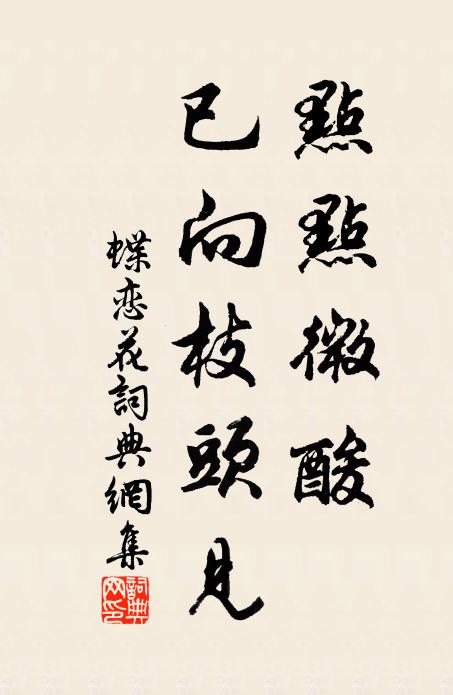 點點微酸
已向枝頭見
蝶恋花詞典網集
詞典网印